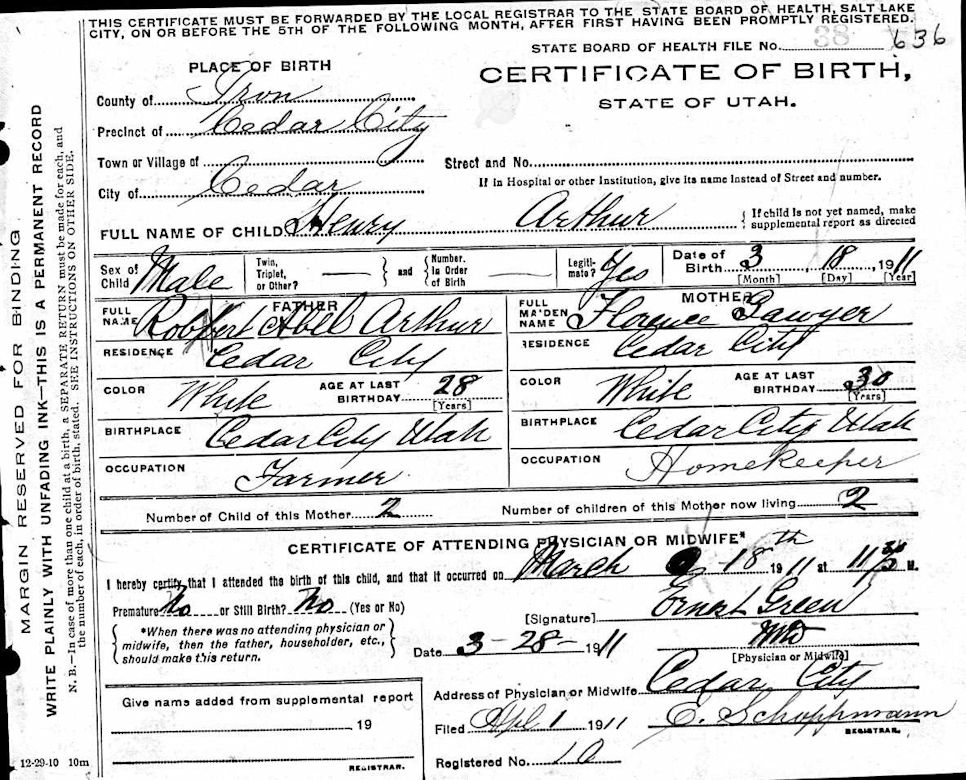 THIS CERTIFICATE MUST BE FORWARDED BY THE LOCAL REGISTRAR TO THE STATE BOARD OF HEALTH, SALT LAKE
CITY, ON OR BEFORE THE 5TH OF THE FOLLOWING MONTH, AFTER FIRST HAVING BEEN PROMPTLY REGISTERED.
STATE BOARD OF HEALTH FILE No. 38 636
PLACE OF BIRTH
CERTIFICATE OF BIRTH,
STATE OF UTAH.
County of Iron
Precinct of Cedar City
Town or Village of
Street and No.
City of Cedar
If in Hospital or other Institution, give its name instead of Street and number.
FULL NAME OF CHILD Henry Arthur { If child is not yet named, make supplemental report as directed
Sex of Child Male
Twin, Triplet, or Other? — } and { Number. in Order of Birth —
Legiti-mate? Yes
Date of Birth 3 18, 1911
[Month] [Day] [Year]
FATHER
FULL NAME Robert Abel Arthur
MOTHER
FULL MAIDEN NAME Florence Sawyer
RESIDENCE Cedar City
RESIDENCE Cedar City
COLOR White AGE AT LAST BIRTHDAY 28 [Years]
COLOR White AGE AT LAST BIRTHDAY 30 [Years]
BIRTHPLACE Cedar City Utah
BIRTHPLACE Cedar City Utah
OCCUPATION Farmer
OCCUPATION Homekeeper
Number of Child of this Mother 2 Number of children of this Mother now living 2
CERTIFICATE OF ATTENDING PHYSICIAN OR MIDWIFE*
I hereby certify that I attended the birth of this child, and that it occurred on March 18th 1911 at 11 30 M.
Premature No or Still Birth? No (Yes or No)
[Signature] Ernest Green
{ *When there was no attending physician or
midwife, then the father, householder, etc.,
should make this return. }
MD
[Physician or Midwife]
Date 3-28- 1911
Give name added from supplemental report
19
REGISTRAR.
Address of Physician or Midwife Cedar City
Filed Apl 1 1911 C. Schoppmann
REGISTRAR.
Registered No. 10
12-29-10 10m
MARGIN RESERVED FOR BINDING
WRITE PLAINLY WITH UNFADING INK—THIS IS A PERMANENT RECORD
N. B.—In case of more than one child at a birth, a SEPARATE RETURN must be made for each, and
the number of each, in order of birth, stated. SEE INSTRUCTIONS ON OTHER SIDE.